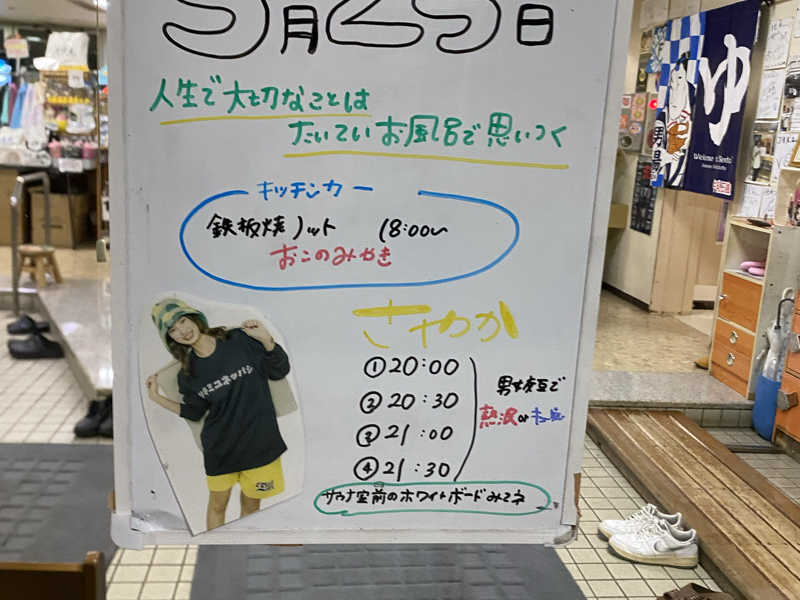 5月25日
人生で大切なことは
たいていお風呂で思いつく
キッチンカー
鉄板焼ノット 18:00~
おこのみやき
さやか
①20:00
②20:30
③21:00
④21:30
男女交互で
熱波or
サウナ室前のホワイトボードみてネ
ゆ
男湯